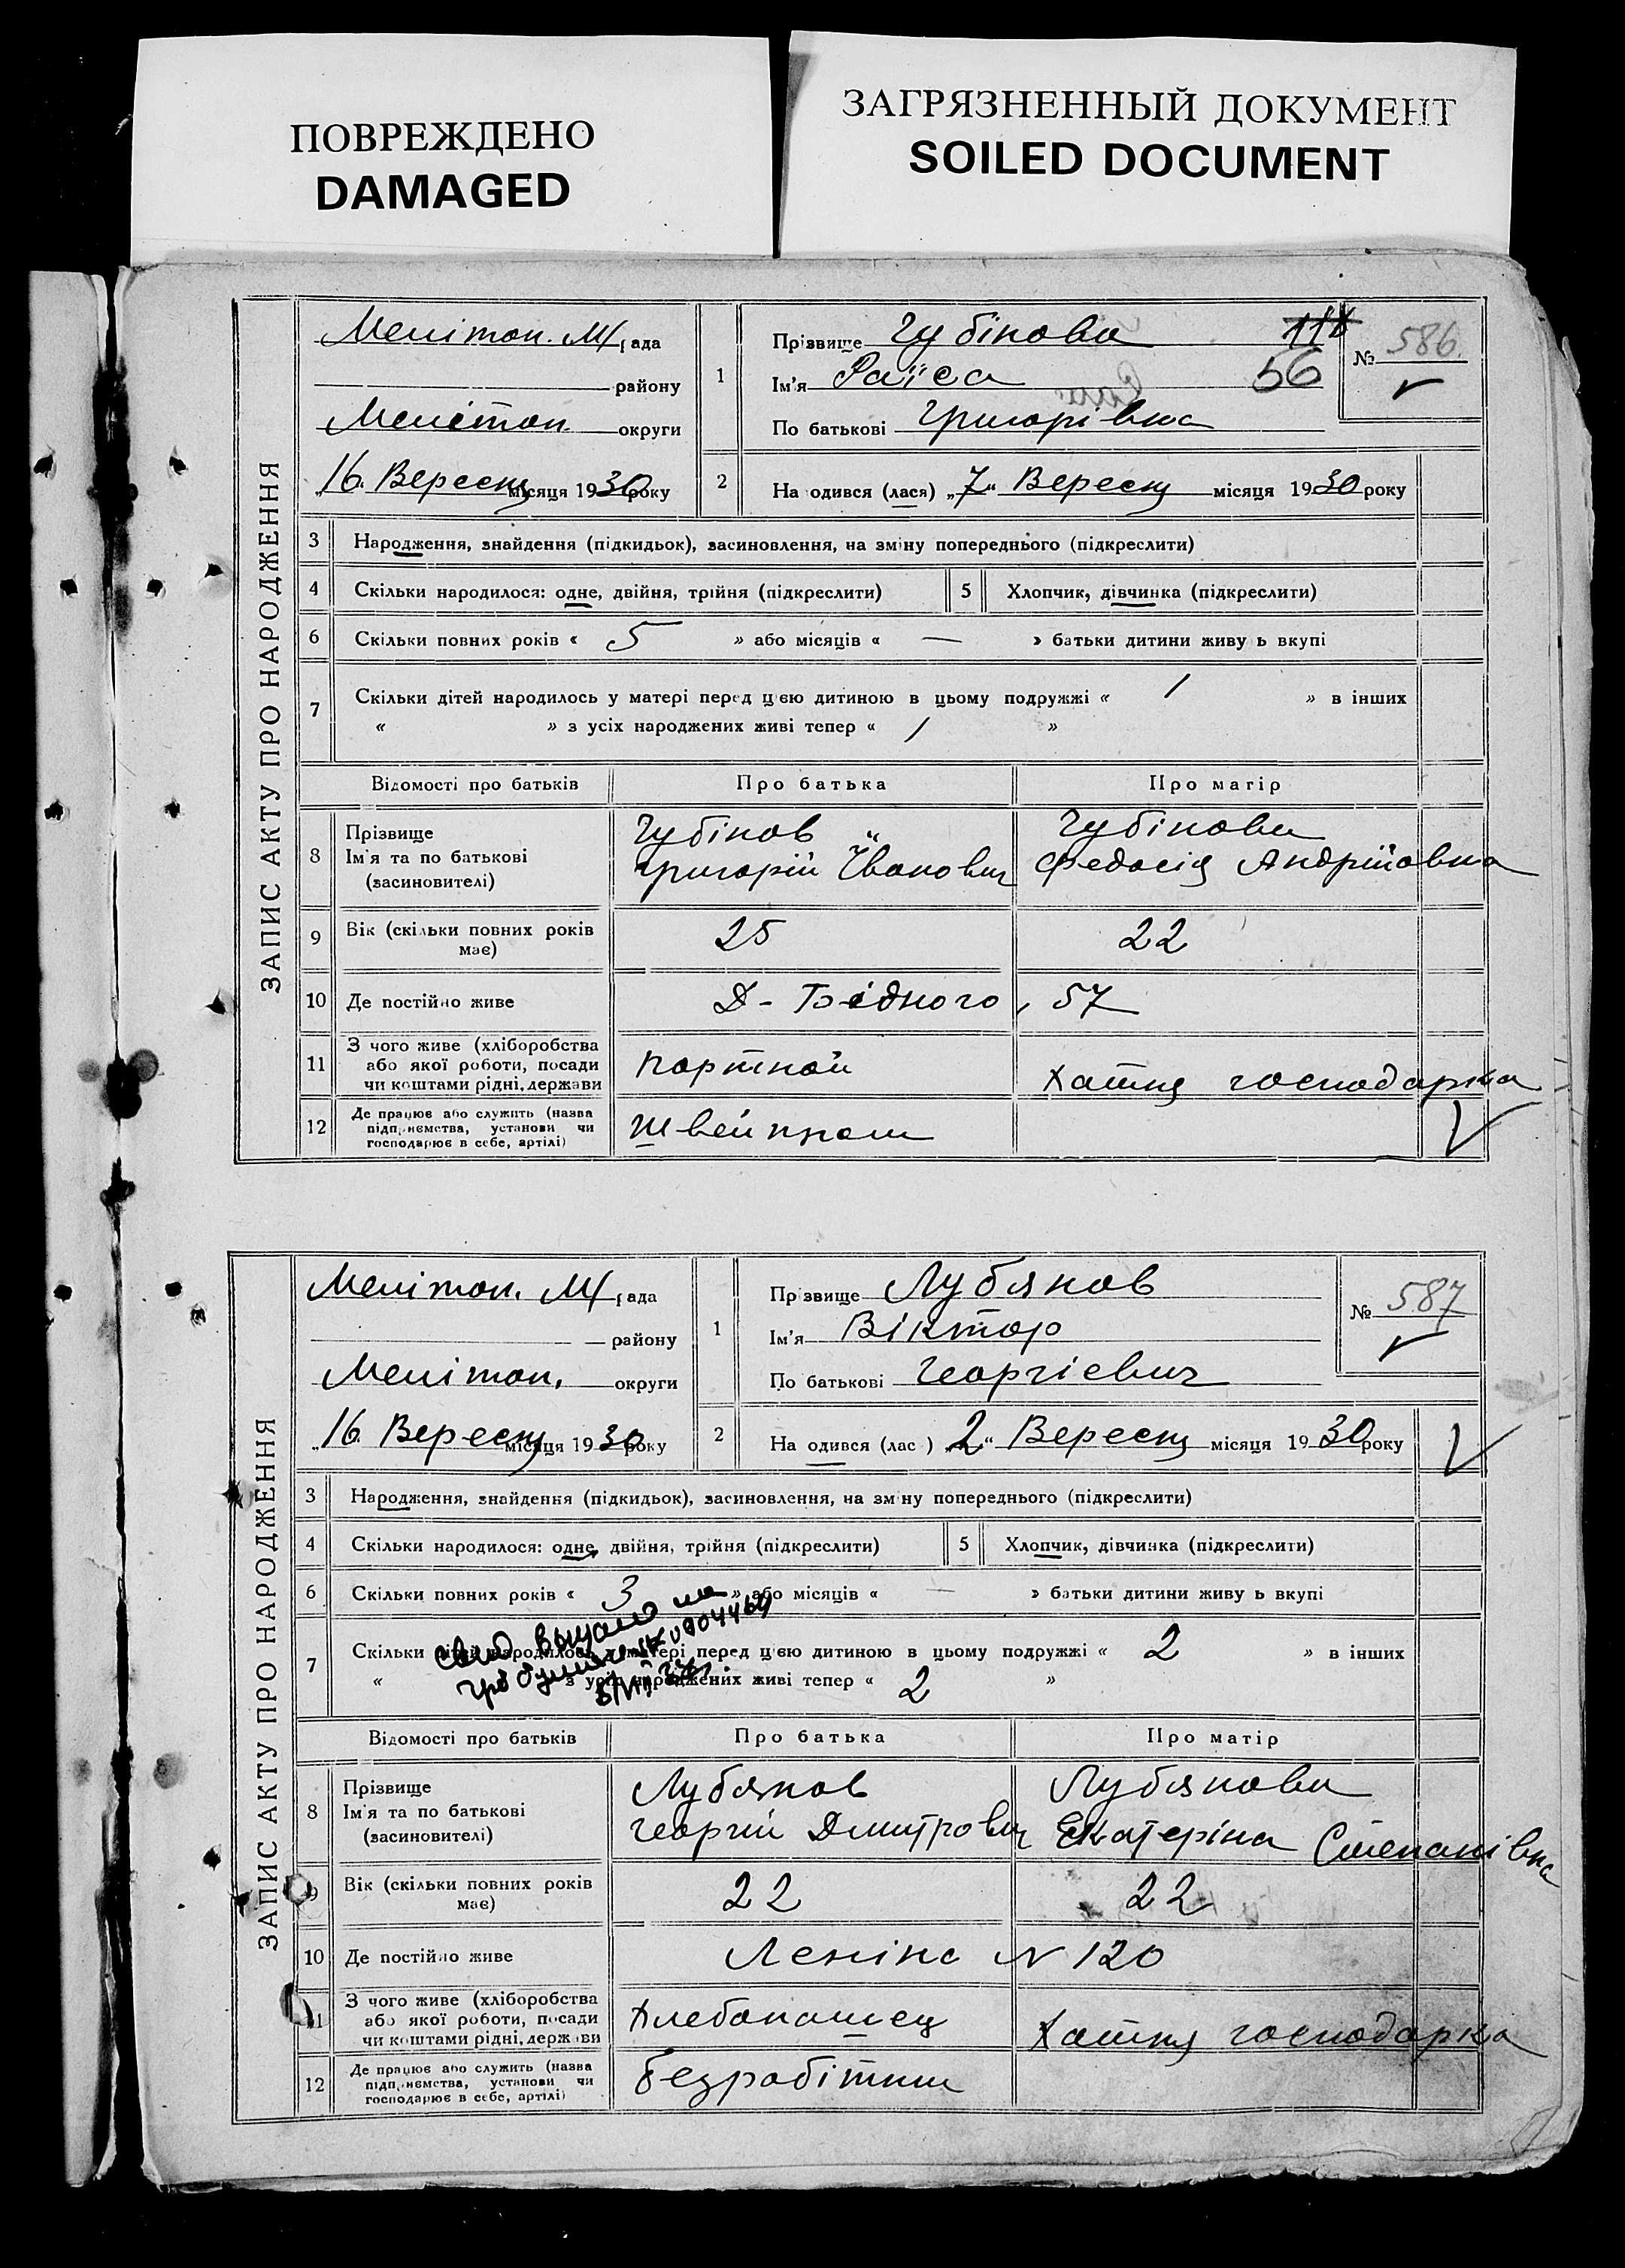 ПОВРЕЖДЕНО
DAMAGED
ЗАГРЯЗНЕННЫЙ ДОКУМЕНТ
SOILED DOCUMENT
ЗАПИС АКТУ ПРО НАРОДЖЕННЯ
Мелітоп. М/ ада
району
Мелітоп. округи
„16. Вересня місяця 1930 року
1
Прізвище Губінова
Ім'я Раїса 56
По батькові Григорівна
№ 586
2 На одився (лася) „7“ Вересня місяця 1930 року
3 Народження, знайдення (підкидьок), засиновлення, на зміну попереднього (підкреслити)
4 Скільки народилося: одне, двійня, трійня (підкреслити) 5 Хлопчик, дівчинка (підкреслити)
6 Скільки повних років « 5 » або місяців « — » батьки дитини живу ь вкупі
7 Скільки дітей народилось у матері перед цією дитиною в цьому подружжі « 1 » в інших
« » з усіх народжених живі тепер « 1 »
Відомості про батьків Про батька Про матір
8 Прізвище
Ім'я та по батькові
(засиновителі)
Губінов
Григорій Іванович
Губінова
Федосія Андріївна
9 Вік (скільки повних років має) 25 22
10 Де постійно живе Д-Бєдного, 57
11 З чого живе (хліборобства
або якої роботи, посади
чи коштами рідні, держави
портной Хатня господарка
12 Де працює або служить (назва
підприємства, установи чи
господарює в себе, артілі)
Швейпром
ЗАПИС АКТУ ПРО НАРОДЖЕННЯ
Мелітоп. М/ ада
району
Мелітоп. округи
„16. Вересня місяця 1930 року
1
Пр звище Лубянов
Ім'я Віктор
По батькові Георгієвич
№ 587
2 На одився (лас ) „2“ Вересня місяця 1930 року
3 Народження, знайдення (підкидьок), засиновлення, на зм ну попереднього (підкреслити)
4 Скільки народилося: одне, двійня, трійня (підкреслити) 5 Хлопчик, дівчинка (підкреслити)
6 Скільки повних років « 3 » або місяців « — » батьки дитини живу ь вкупі
7 Скільки дітей народилось у матері перед цією дитиною в цьому подружжі « 2 » в інших
« » з усіх народжених живі тепер « 2 »
Відомості про батьків Про батька Про матір
8 Прізвище
Ім'я та по батькові
(засиновителі)
Лубянов
Георгій Дмитрович
Лубянова
Екатеріна Степанівна
9 Вік (скільки повних років має) 22 22
10 Де постійно живе Леніна N 120
11 З чого живе (хліборобства
або якої роботи, посади
чи коштами рідні, держави
Хлебопашец Хатня господарка
12 Де працює або служить (назва
підприємства, установи чи
господарює в себе, артілі)
безробітний